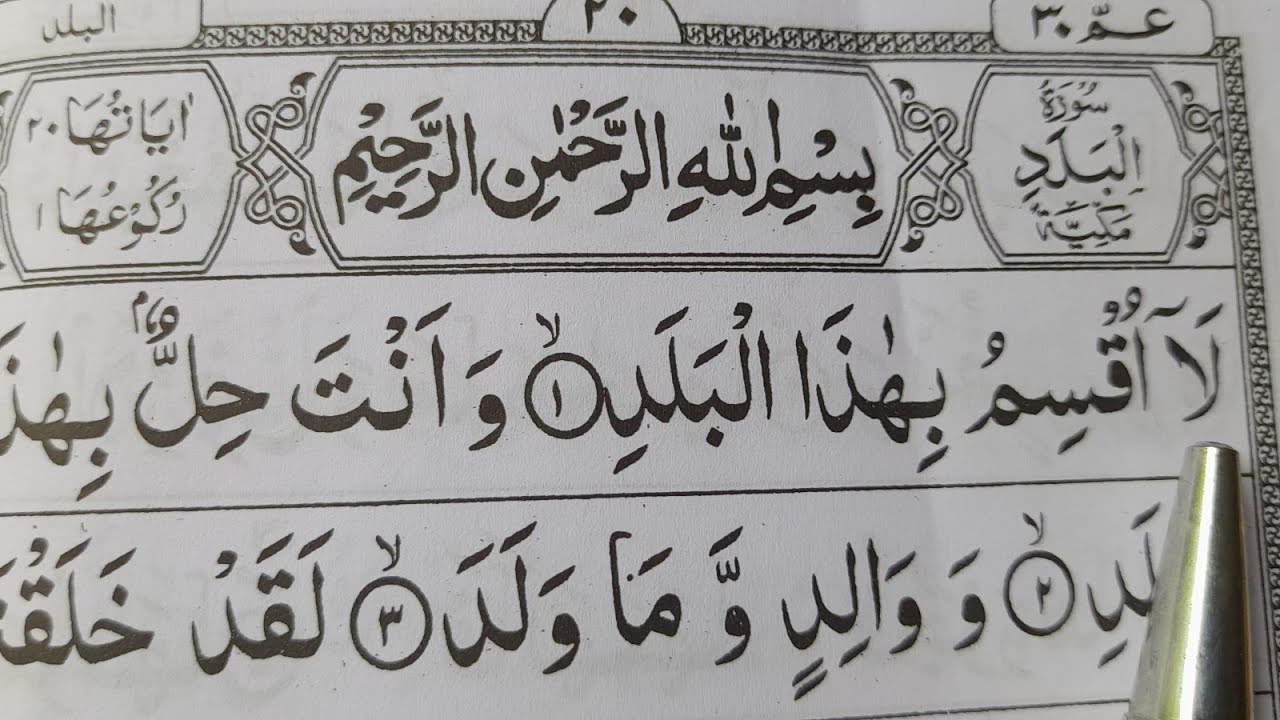 عـمّ ٣٠
٢٠
البلد
سُوْرَةُ
الْبَلَدِ
مَكِّيَّةٌ
بِسْمِ اللّٰهِ الرَّحْمٰنِ الرَّحِيْمِ
اٰيَاتُهَا ٢٠
رُكُوْعُهَا ١
لَاۤ اُقْسِمُ بِهٰذَا الْبَلَدِۙ ١ وَ اَنْتَ حِلٌّۢ بِهٰذَا
لَدِۙ ٢ وَ وَالِدٍ وَّ مَا وَلَدَۙ ٣ لَقَدْ خَلَقْنَا